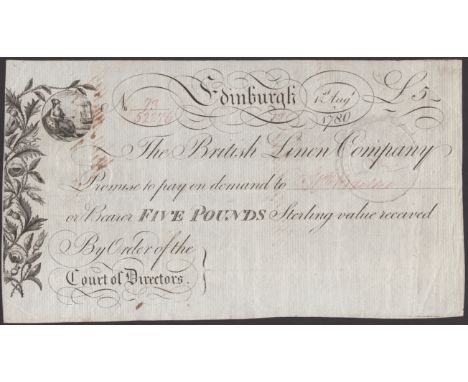 No 73/52276 Edinburgh 1st Augt 1780 £5
The British Linen Company
Promise to pay on demand to
or Bearer FIVE POUNDS Sterling value received
By Order of the
Court of Directors.